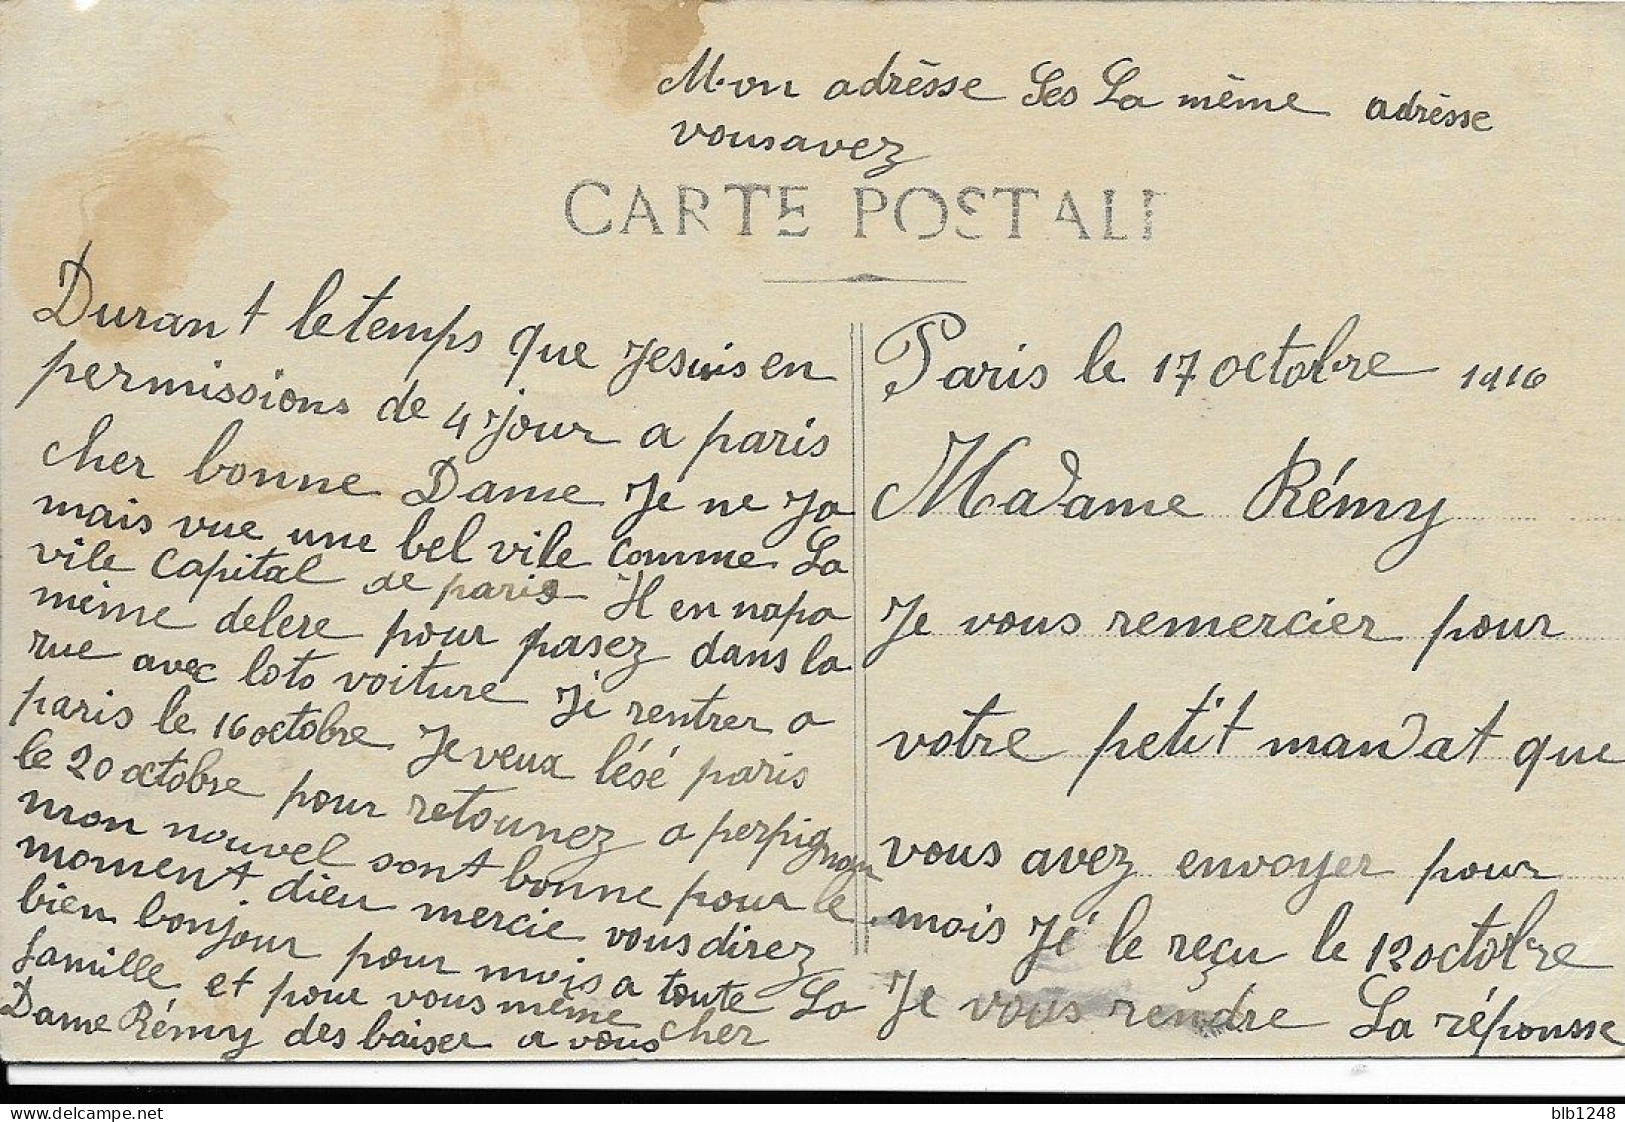 Mon adrèsse Ses La mème adrèsse
vousavez
CARTE POSTALE
Paris le 17 octobre 1916
Madame Rémy
Je vous remercier pour
vôtre petit mandat que
vous avez envoyer pour
mois Jé le reçu le 12 octobre
Je vous rendre La répousse
Durant letemps que Jesuis en
permissions de 4 jour a paris
cher bonne Dame Je ne Ja
mais vue une bel vile comme La
vile capital de paris Il en napa
mème delere pour pasez dans la
rue avec loto voiture Jé rentrer a
paris le 16 octobre Je veux lésé paris
le 20 octobre pour retounez a perpignan
mon nouvel sont bonne pour le
moment dieu mercie vous direz
bien bonjour pour mois a toute La
famille et pour vous mème cher
Dame Rémy des baiser a vous
Delcampe.net
blb1248